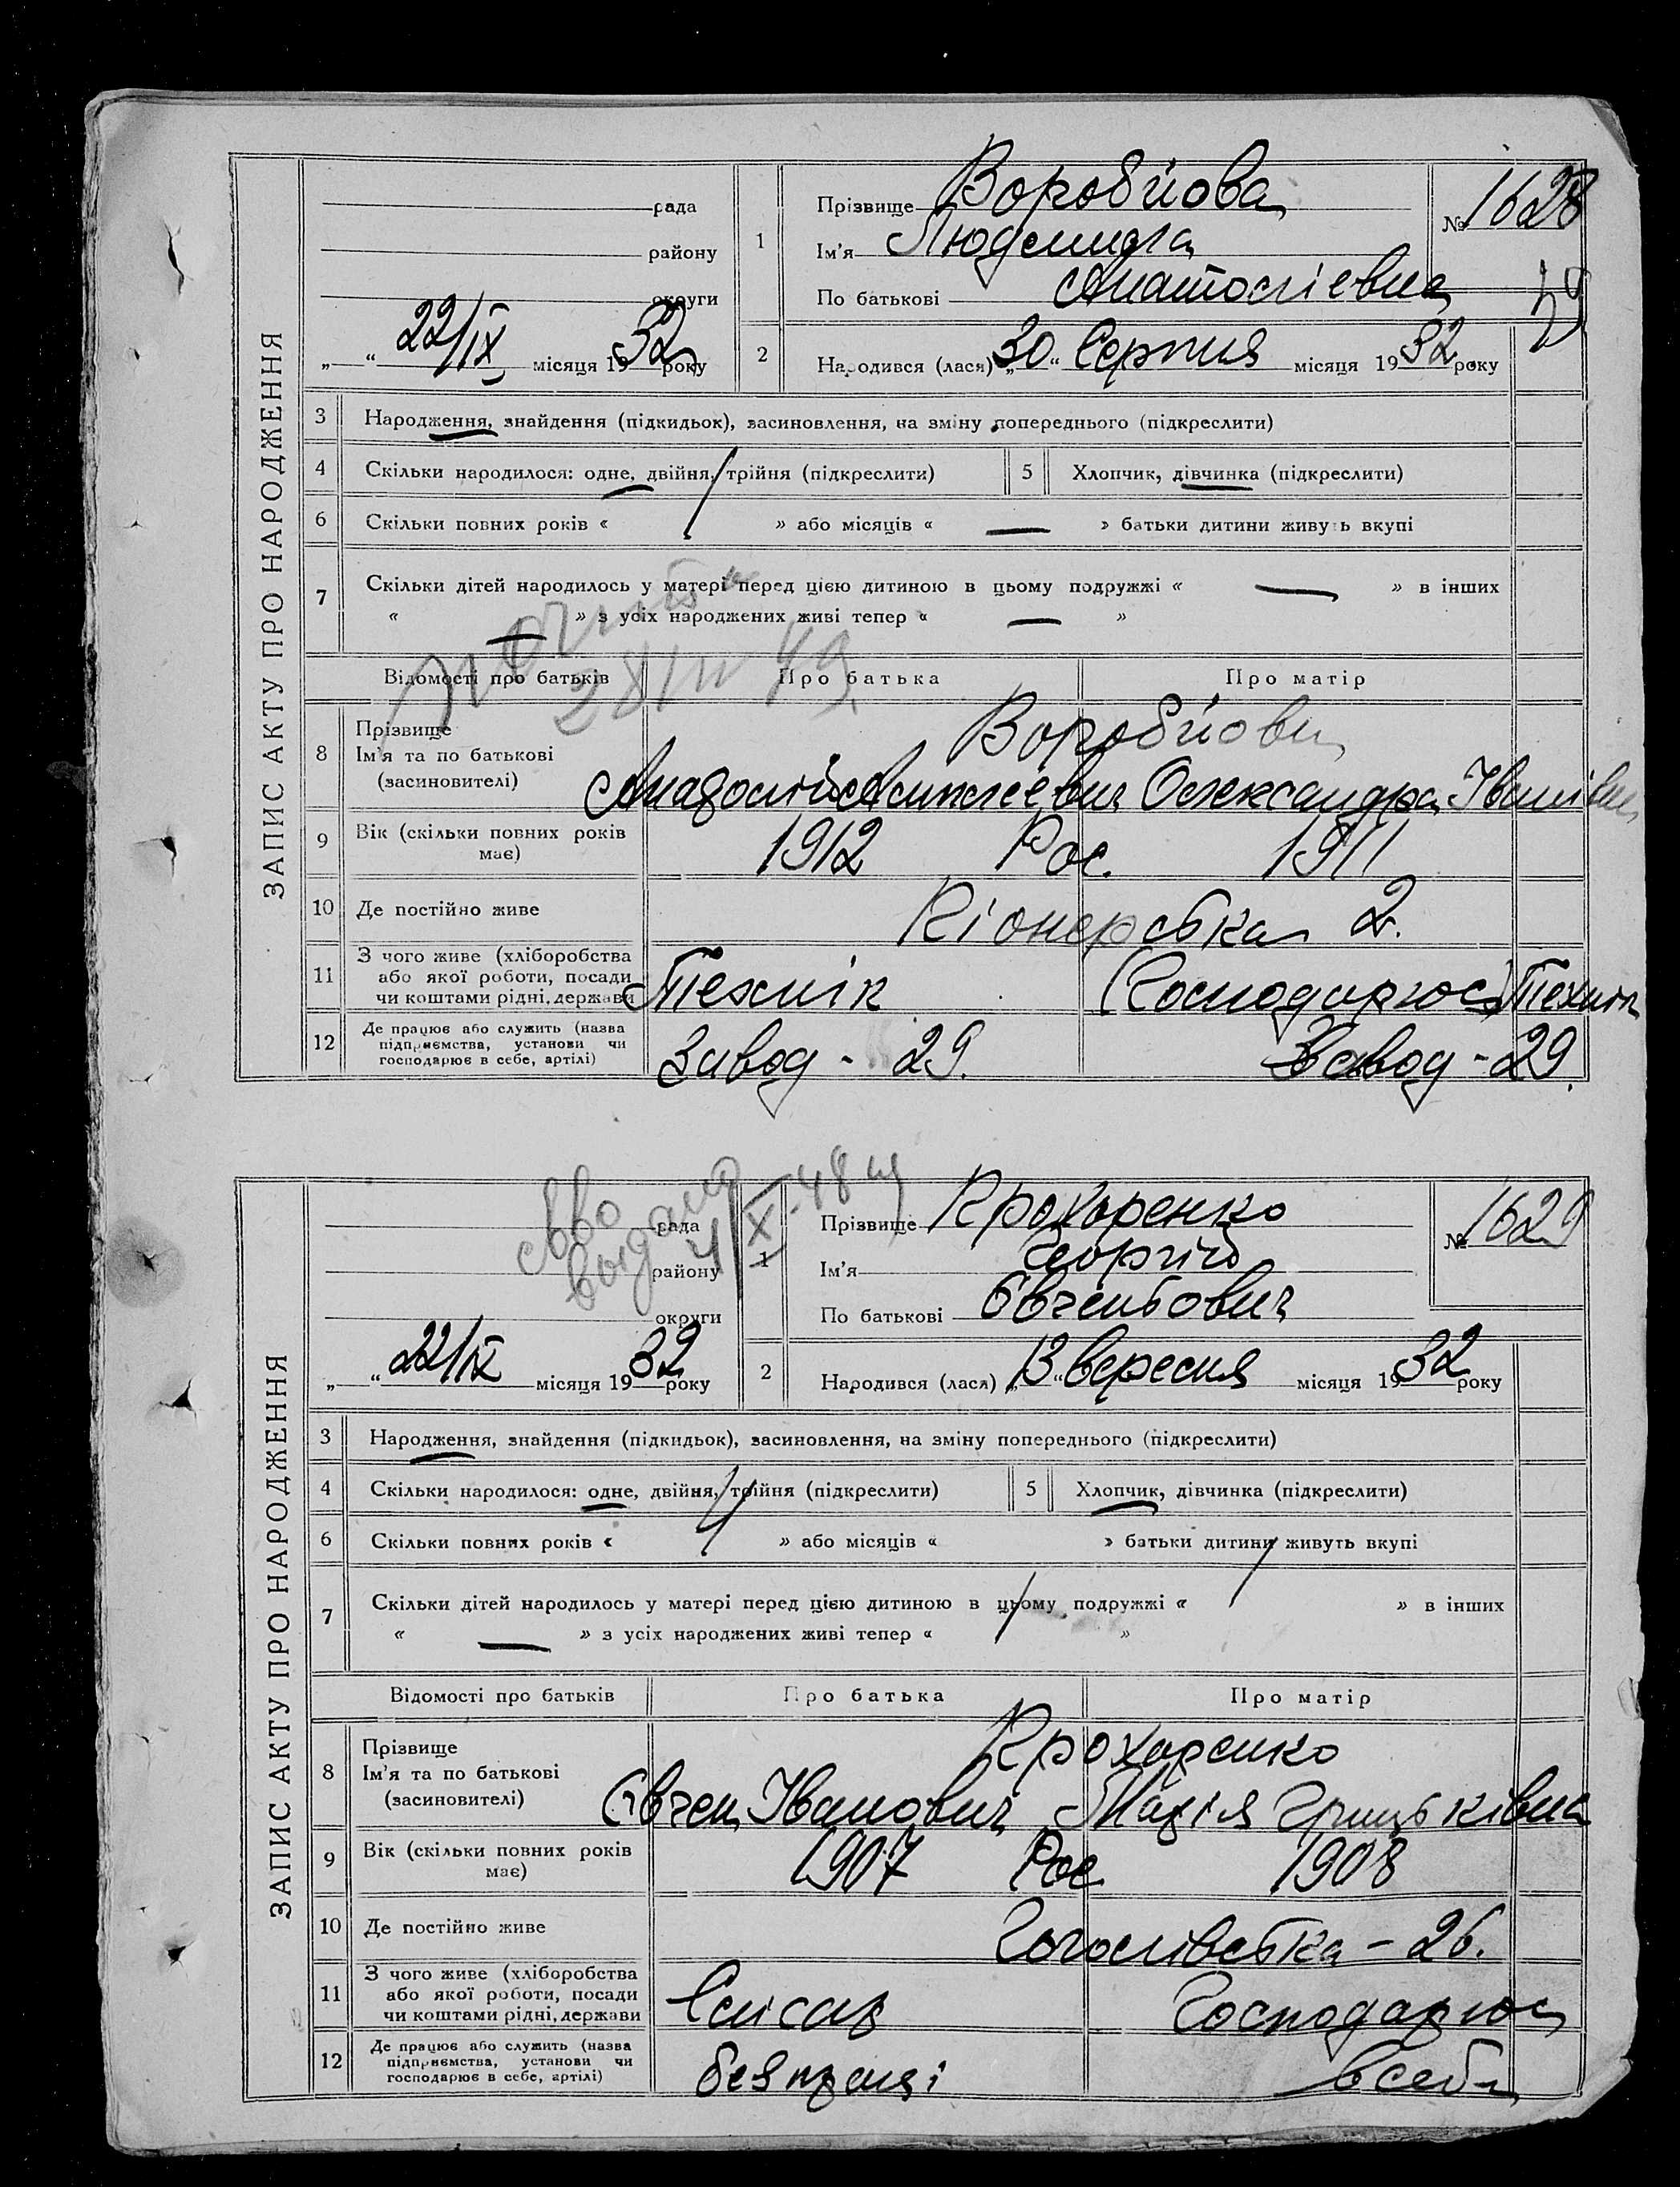 ЗАПИС АКТУ ПРО НАРОДЖЕННЯ
рада
району
округи
„ “ 22/IX місяця 1932 року
1 Прізвище Воробйова
Ім'я Людмила
По батькові Анатоліевна
№ 1628
2 Народився (лася) „30“ Серпня місяця 1932 року
3 Народження, знайдення (підкидьок), засиновлення, на зміну попереднього (підкреслити)
4 Скільки народилося: одне, двійня, трійня (підкреслити) 5 Хлопчик, дівчинка (підкреслити)
6 Скільки повних років « » або місяців « — » батьки дитини живуть вкупі
7 Скільки дітей народилось у матері перед цією дитиною в цьому подружжі « — » в інших
« — » з усіх народжених живі тепер « — »
Відомості про батьків Про батька Про матір
8 Прізвище
Ім'я та по батькові
(засиновителі)
Воробйови
Олександра Іванівна
9 Вік (скільки повних років має) 1912 Рос. 1911
10 Де постійно живе Піонерська 2.
11 З чого живе (хліборобства
або якої роботи, посади
чи коштами рідні, держави
Технік (Господарює) Технік
12 Де працює або служить (назва
підприємства, установи чи
господарює в себе, артілі)
Завод - 29. Завод - 29.
ЗАПИС АКТУ ПРО НАРОДЖЕННЯ
выдано
рада
району
округи
„ “ 22/IX місяця 1932 року
1 Прізвище Прохоренко
Ім'я Георгій
По батькові Євгеньович
№ 1629
2 Народився (лася) „13“ вересня місяця 1932 року
3 Народження, знайдення (підкидьок), засиновлення, на зміну попереднього (підкреслити)
4 Скільки народилося: одне, двійня, трійня (підкреслити) 5 Хлопчик, дівчинка (підкреслити)
6 Скільки повних років « » або місяців « » батьки дитини живуть вкупі
7 Скільки дітей народилось у матері перед цією дитиною в цьому подружжі « » в інших
« — » з усіх народжених живі тепер « »
Відомості про батьків Про батька Про матір
8 Прізвище
Ім'я та по батькові
(засиновителі)
Прохоренко
Євген Іванович Марія Грицьківна
9 Вік (скільки повних років має) 1907 Рос 1908
10 Де постійно живе Гоголівська - 26.
11 З чого живе (хліборобства
або якої роботи, посади
чи коштами рідні, держави
Слюсар Господарює
12 Де працює або служить (назва
підприємства, установи чи
господарює в себе, артілі)
без праці в себе